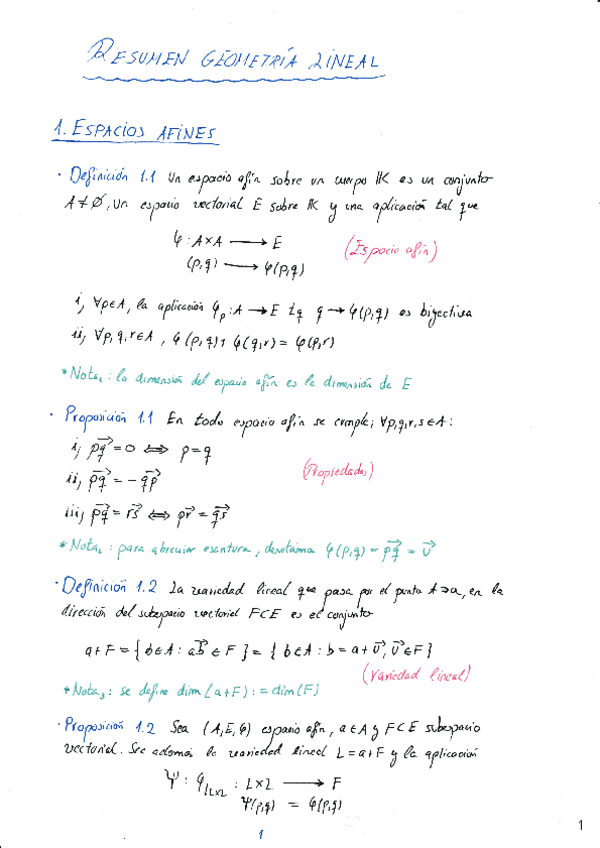 RESUMEN GEOMETRÍA LINEAL
1. ESPACIOS AFINES
· Definición 1.1 Un espacio afín sobre un cuerpo 𝕂 es un conjunto
A ≠ ∅, un espacio vectorial E sobre 𝕂 y una aplicación tal que
φ : A×A ⟶ E
(Espacio afín)
(p,q) ⟶ φ(p,q)
i, ∀p∈A, la aplicación φₚ : A → E tq q → φ(p,q) es biyectiva
ii, ∀p,q,r∈A, φ(p,q) + φ(q,r) = φ(p,r)
*Nota₁: la dimensión del espacio afín es la dimensión de E
· Proposición 1.1 En todo espacio afín se cumple; ∀p,q,r,s∈A:
i, p͢q = 0 ⟺ p = q
(Propiedades)
ii, p͢q = - q͢p
iii, p͢q = r͢s ⟺ p͢r = q͢s
*Nota₂: para abreviar escritura, denotamos φ(p,q) = p͢q = v⃗
· Definición 1.2 La variedad lineal que pasa por el punto A∋a, en la
dirección del subespacio vectorial F⊂E es el conjunto
a+F = { b∈A : a͢b ∈ F } = { b∈A : b = a + v⃗, v⃗∈F }
(Variedad lineal)
*Nota₃: se define dim(a+F) := dim(F)
· Proposición 1.2 Sea (A,E,φ) espacio afín, a∈A y F⊂E subespacio
vectorial. Sea además la variedad lineal L = a+F y la aplicación
Ψ : φ|L×L : L×L ⟶ F
Ψ(p,q) = φ(p,q)
1
1